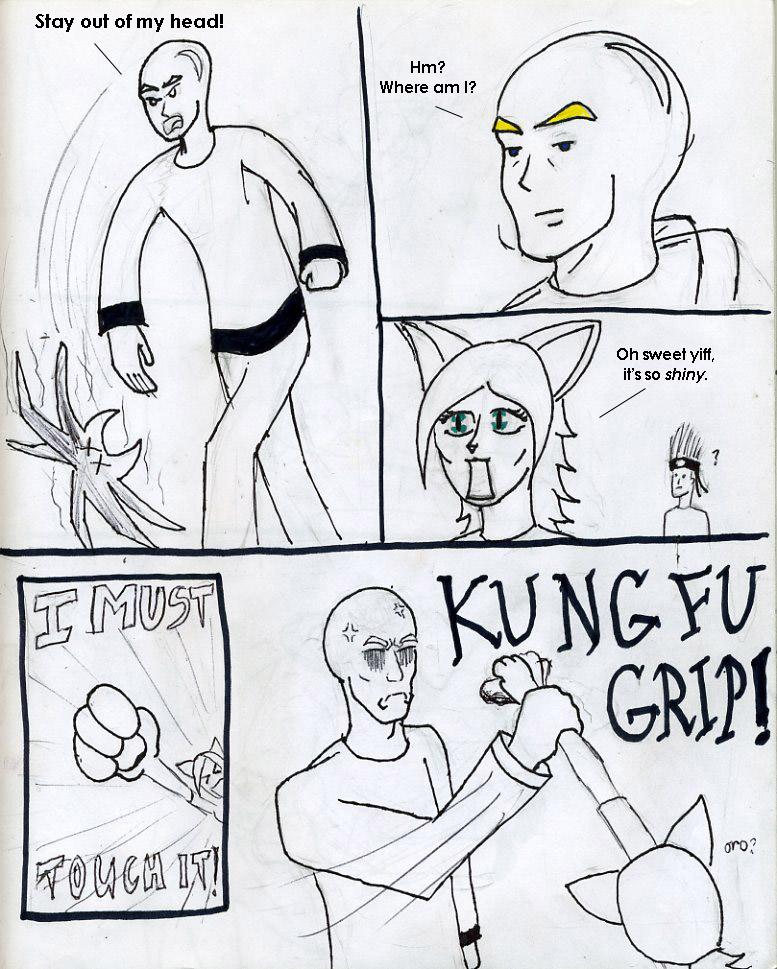 Stay out of my head!
Hm?
Where am I?
Oh sweet yiff,
it's so shiny.
?
I MUST
TOUCH IT!
KUNG FU
GRIP!
oro?